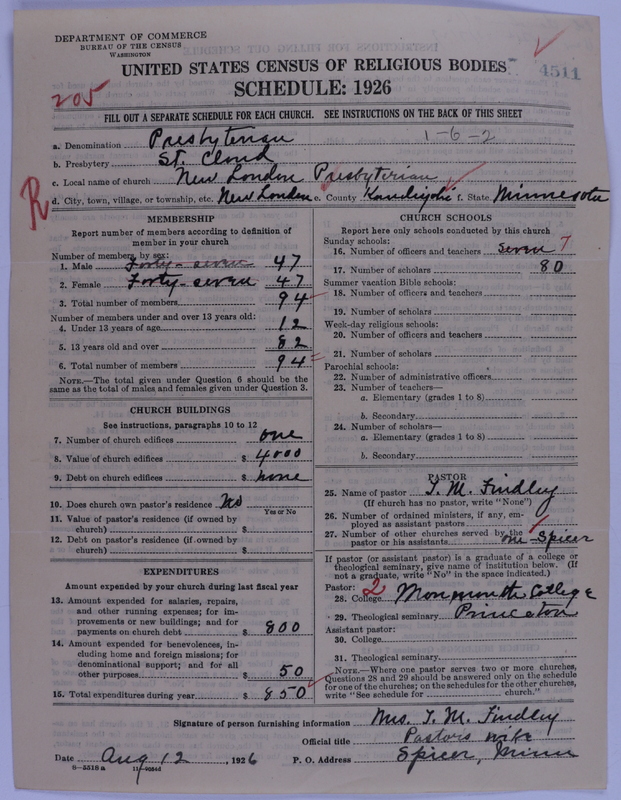 DEPARTMENT OF COMMERCE
BUREAU OF THE CENSUS
WASHINGTON
UNITED STATES CENSUS OF RELIGIOUS BODIES
4511
SCHEDULE: 1926
205
FILL OUT A SEPARATE SCHEDULE FOR EACH CHURCH. SEE INSTRUCTIONS ON THE BACK OF THIS SHEET
1-6-2
a. Denomination Presbyterian
b. Presbytery St. Cloud
c. Local name of church New London Presbyterian
R
d. City, town, village, or township, etc. New London e. County Kandiyohi f. State Minnesota
MEMBERSHIP
Report number of members according to definition of
member in your church
Number of members by sex:
1. Male Forty-seven 47
2. Female Forty-seven 47
3. Total number of members 94
Number of members under and over 13 years old:
4. Under 13 years of age 12
5. 13 years old and over 82
6. Total number of members 94
NOTE.—The total given under Question 6 should be
same as the total of males and females given under Question 3.
CHURCH BUILDINGS
See instructions, paragraphs 10 to 12
7. Number of church edifices one
8. Value of church edifices $ 4000
9. Debt on church edifices $ none
10. Does church own pastor's residence No
Yes or No
11. Value of pastor's residence (if owned by
church) $
12. Debt on pastor's residence (if owned by
church) $
EXPENDITURES
Amount expended by your church during last fiscal year
13. Amount expended for salaries, repairs,
and other running expenses; for im-
provements or new buildings; and for
payments on church debt $ 800
14. Amount expended for benevolences, in-
cluding home and foreign missions; for
denominational support; and for all
other purposes $ 50
15. Total expenditures during year $ 850
CHURCH SCHOOLS
Report here only schools conducted by this church
Sunday schools:
16. Number of officers and teachers seven 7
17. Number of scholars 80
Summer vacation Bible schools:
18. Number of officers and teachers
19. Number of scholars
Week-day religious schools:
20. Number of officers and teachers
21. Number of scholars
Parochial schools:
22. Number of administrative officers
23. Number of teachers—
a. Elementary (grades 1 to 8)
b. Secondary
24. Number of scholars—
a. Elementary (grades 1 to 8)
b. Secondary
PASTOR
25. Name of pastor T. M. Findley
(If church has no pastor, write "None")
26. Number of ordained ministers, if any, em-
ployed as assistant pastors
27. Number of other churches served by the
pastor or his assistants one-Spicer
If pastor (or assistant pastor) is a graduate of a college or
theological seminary, give name of institution below. (If
not a graduate, write "No" in the space indicated.)
Pastor: 2
28. College Monmouth College
29. Theological seminary Princeton
Assistant pastor:
30. College
31. Theological seminary
NOTE.—Where one pastor serves two or more churches,
Questions 28 and 29 should be answered only on the schedule
for one of the churches; on the schedules for the other churches,
write "See schedule for church."
Signature of person furnishing information Mrs. T. M. Findley
Official title Pastors wife
Date Aug 12, 1926 P. O. Address Spicer, Minn
8-5518 a